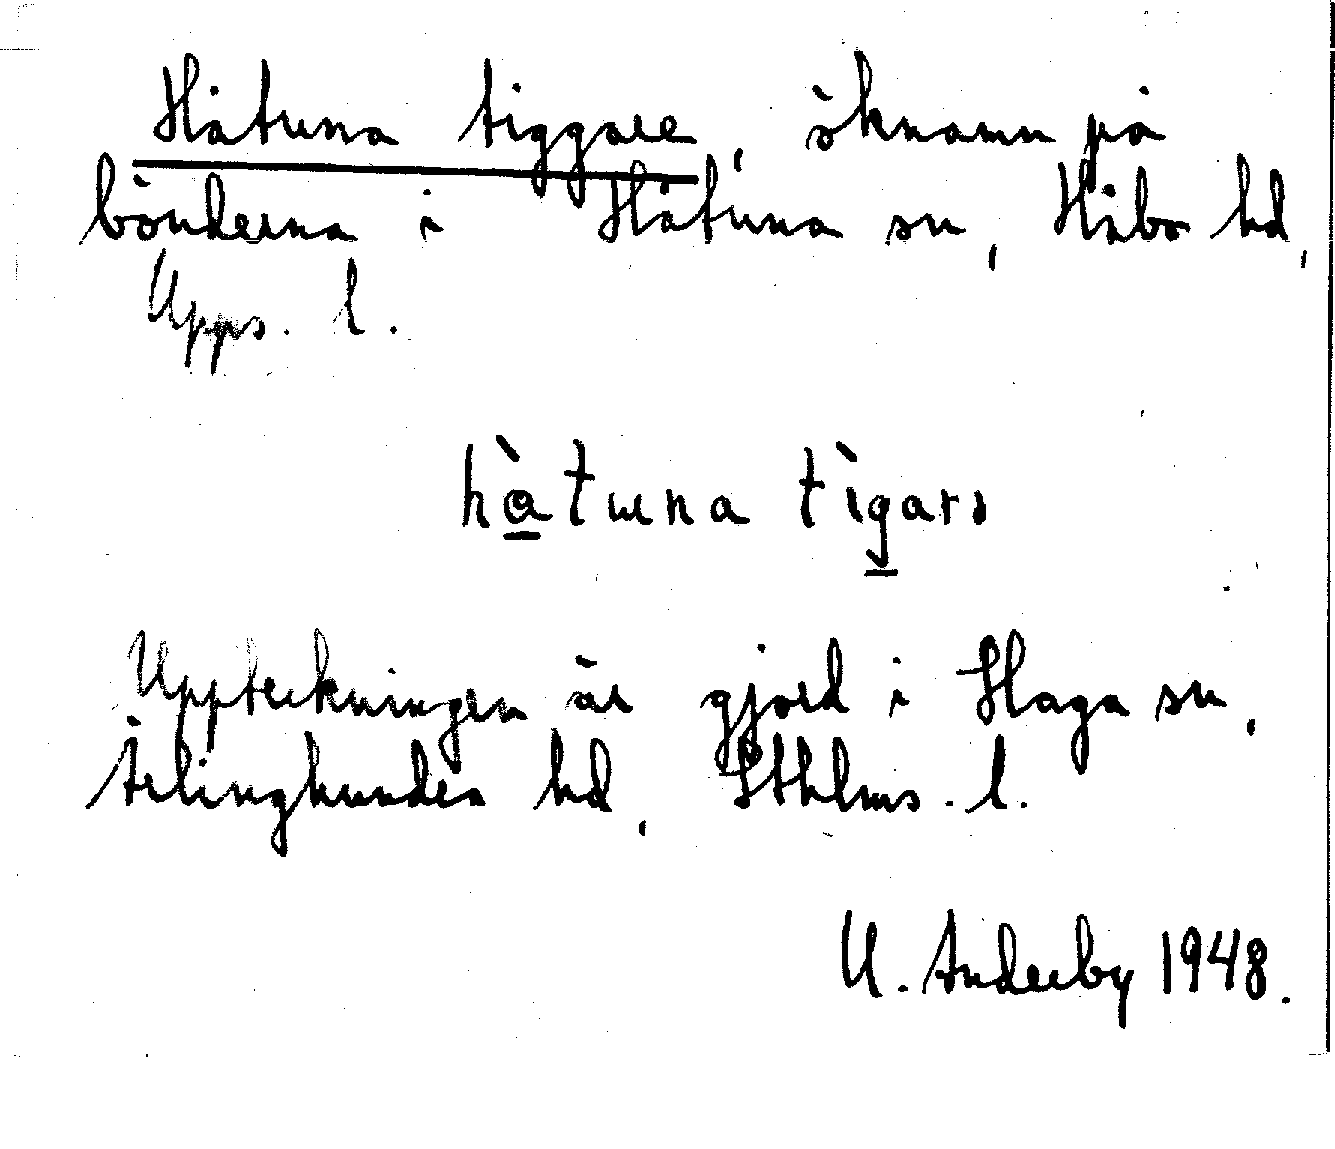 Håtuna tiggare, öknamn på
bönderna i Håtuna sn, Håbo hd,
Upps. l.
hà̱tuna tìg̱arı
Uppteckningen är gjord i Haga sn,
Ärlinghundra hd, Sthlms. l.
U. Anderby 1948.